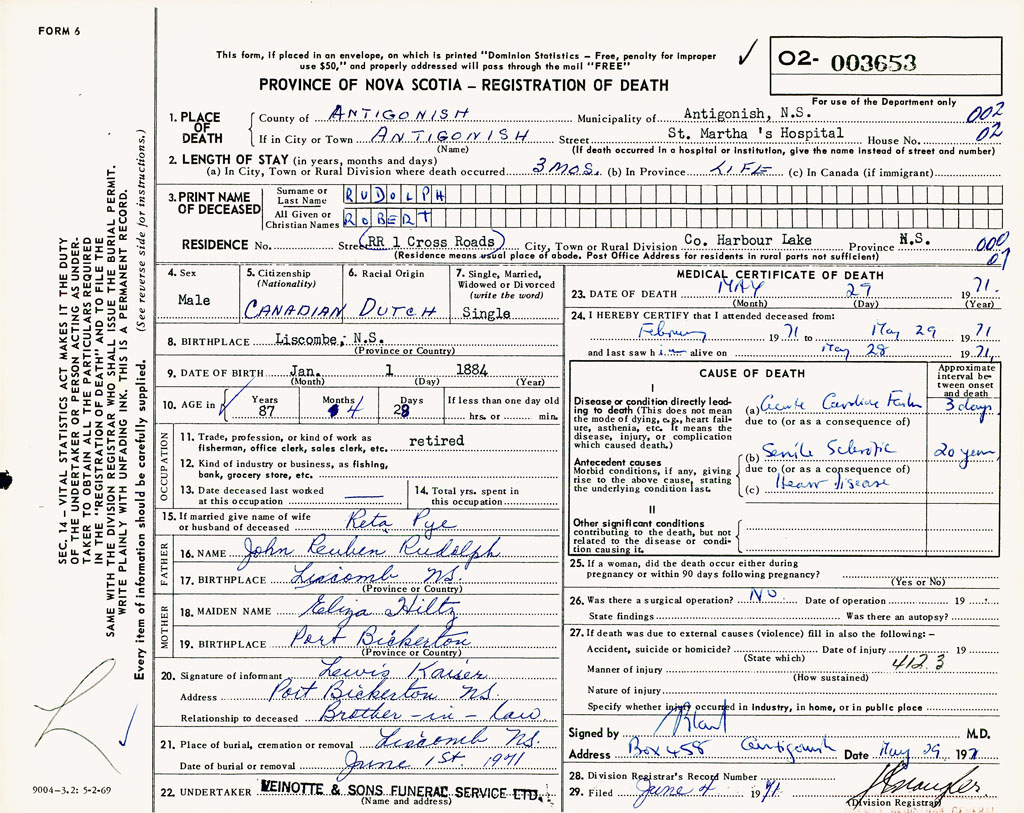 FORM 6
This form, if placed in an envelope, on which is printed "Dominion Statistics – Free, penalty for improper
use $50," and properly addressed will pass through the mail "FREE"
O2- 003653
PROVINCE OF NOVA SCOTIA – REGISTRATION OF DEATH
For use of the Department only
1. PLACE OF DEATH
County of ANTIGONISH Municipality of Antigonish, N.S. 002
If in City or Town ANTIGONISH Street St. Martha 's Hospital House No. 02
(Name) (If death occurred in a hospital or institution, give the name instead of street and number)
2. LENGTH OF STAY (in years, months and days)
(a) In City, Town or Rural Division where death occurred 3 MOS. (b) In Province LIFE (c) In Canada (if immigrant)
3. PRINT NAME OF DECEASED
Surname or Last Name RUDOLPH
All Given or Christian Names ROBERT
RESIDENCE No. Street (RR 1 Cross Roads) City, Town or Rural Division Co. Harbour Lake Province N.S. 000
(Residence means usual place of abode. Post Office Address for residents in rural parts not sufficient) 07
4. Sex
Male
5. Citizenship
(Nationality)
CANADIAN
6. Racial Origin
DUTCH
7. Single, Married,
Widowed or Divorced
(write the word)
Single
8. BIRTHPLACE Liscombe, N.S.
(Province or Country)
9. DATE OF BIRTH Jan. 1 1884
(Month) (Day) (Year)
10. AGE in
Years
87
Months
4
Days
28
If less than one day old
hrs. or min.
OCCUPATION
11. Trade, profession, or kind of work as
fisherman, office clerk, sales clerk, etc. retired
12. Kind of industry or business, as fishing,
bank, grocery store, etc.
13. Date deceased last worked
at this occupation
14. Total yrs. spent in
this occupation
15. If married give name of wife
or husband of deceased Reta Pye
FATHER
16. NAME John Reuben Rudolph
17. BIRTHPLACE Liscomb NS.
(Province or Country)
MOTHER
18. MAIDEN NAME Eliza Hiltz
19. BIRTHPLACE Port Bickerton
(Province or Country)
20. Signature of informant Lewis Kaiser
Address Port Bickerton NS.
Relationship to deceased Brother-in-law
21. Place of burial, cremation or removal Liscomb NS.
Date of burial or removal June 1st 1971
22. UNDERTAKER VEINOTTE & SONS FUNERAL SERVICE LTD.
(Name and address)
MEDICAL CERTIFICATE OF DEATH
23. DATE OF DEATH MAY 29 1971.
(Month) (Day) (Year)
24. I HEREBY CERTIFY that I attended deceased from:
February 1971 to May 29 1971
and last saw him alive on May 28 1971,
CAUSE OF DEATH
Approximate
interval be-
tween onset
and death
I
Disease or condition directly lead-
ing to death (This does not mean
the mode of dying, e.g., heart fail-
ure, asthenia, etc. It means the
disease, injury, or complication
which caused death.)
(a) Acute Cardiac 3 days
due to (or as a consequence of)
Antecedent causes
Morbid conditions, if any, giving
rise to the above cause, stating
the underlying condition last.
(b) Senile Sclerotic 20 years
due to (or as a consequence of)
(c) Heart Disease
II
Other significant conditions
contributing to the death, but not
related to the disease or condi-
tion causing it.
25. If a woman, did the death occur either during
pregnancy or within 90 days following pregnancy?
(Yes or No)
26. Was there a surgical operation? NO Date of operation 19
State findings Was there an autopsy?
27. If death was due to external causes (violence) fill in also the following: –
Accident, suicide or homicide? Date of injury 19
(State which) 412.3
Manner of injury
(How sustained)
Nature of injury
Specify whether injury occurred in industry, in home, or in public place
Signed by M.D.
Address Box 458 Antigonish Date May 29 1971
28. Division Registrar's Record Number
29. Filed June 4 1971
(Division Registrar)
SEC. 14 – VITAL STATISTICS ACT MAKES IT THE DUTY
OF THE UNDERTAKER OR PERSON ACTING AS UNDER-
TAKER TO OBTAIN ALL THE PARTICULARS REQUIRED
IN THE "REGISTRATION OF DEATH" AND TO FILE THE
SAME WITH THE DIVISION REGISTRAR WHO SHALL ISSUE THE BURIAL PERMIT.
WRITE PLAINLY WITH UNFADING INK. THIS IS A PERMANENT RECORD.
Every item of information should be carefully supplied. (See reverse side for instructions.)
9004-3.2: 5-2-69